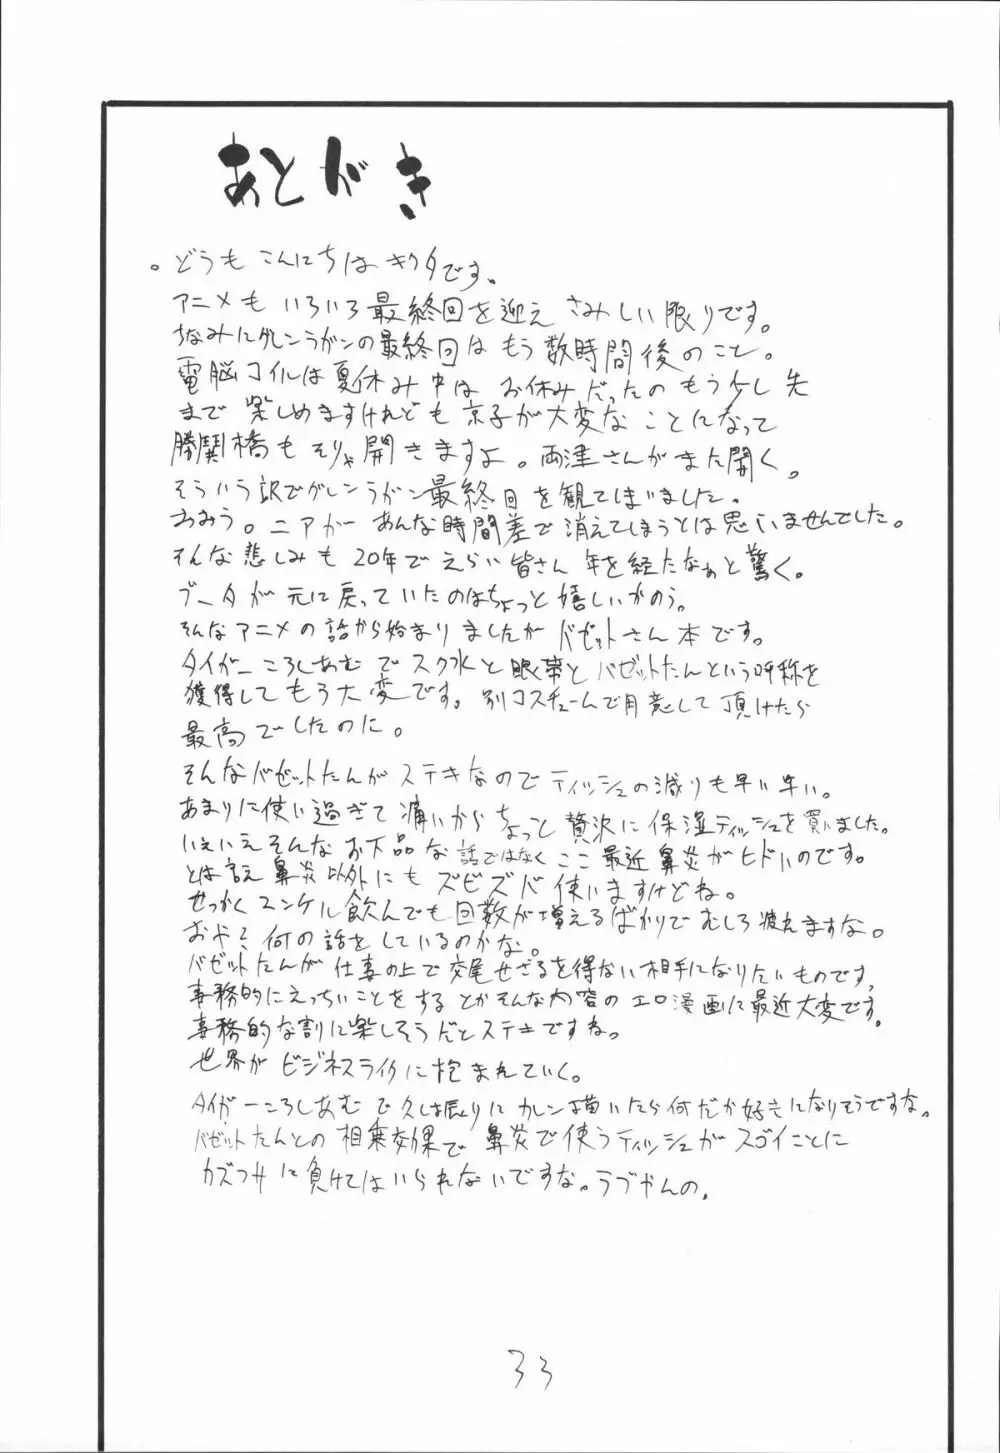 あとがき
。どうも こんにちは キクタです。
アニメも いろいろ最終回を迎え さみしい限りです。
ちなみにグレンラガンの最終回は もう数時間後のこと。
電脳コイルは夏休み中は お休みだったのもう少し先
まで 楽しめますけれども 京子が大変な ことになって
勝鬨橋も そりゃ開きますよ。両津さんがまた開く。
そういう訳でグレンラガン最終回を観てしまいました。
おおう。ニアが あんな時間差で消えてしまうとは思いませんでした。
そんな悲しみも 20年でえらい皆さん 年を経たなぁと驚く。
ブータが 元に戻っていたのはちょっと嬉しいかのう。
そんなアニメの話から始まりましたが バゼットさん本です。
タイガーころしあむ で スク水と眼帯と バゼットたんという呼称を
獲得して もう大変です。別コスチュームで用意して頂けたら
最高でしたのに。
そんなバゼットたんが ステキなので ティッシュの減りも早い早い。
あまりに使い過ぎて 痛いから ちょっと 贅沢に 保湿ティッシュを買いました。
いえいえそんな お下品な 話ではなく ここ最近鼻炎がヒドいのです。
とは言え 鼻炎以外にも ズビズバ 使いますけどね。
せっかく ユンケル飲んでも 回数が増えるばかりで むしろ疲れますな。
おや？何の話をしているのかな。
バゼットたんが 仕事の上で 交尾せざるを得ない相手になりたいものです。
事務的にえっちいことをする とかそんな内容の エロ漫画に最近大変です。
事務的な割に楽しそうだとステキですね。
世界が ビジネスライクに抱まれていく。
タイガーころしあむ で久し振りに カレン描いたら何だか好きになりそうですな。
バゼットたんとの 相乗効果で 鼻炎で使うティッシュが スゴイことに
カズフサに負けてはいられないですな。ラブやんの。
33